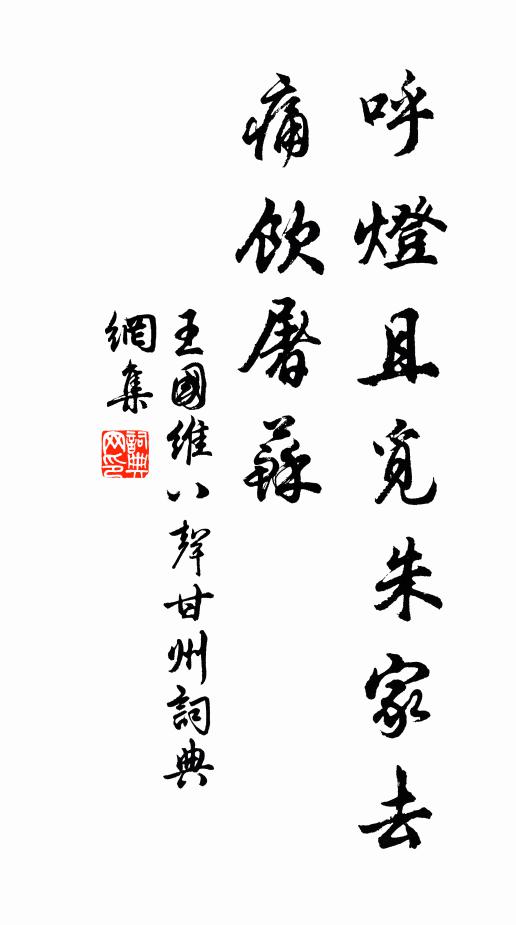 呼燈且覓朱家去
痛飲屠蘇
王國維八聲甘州詞典
網集
詞典網印